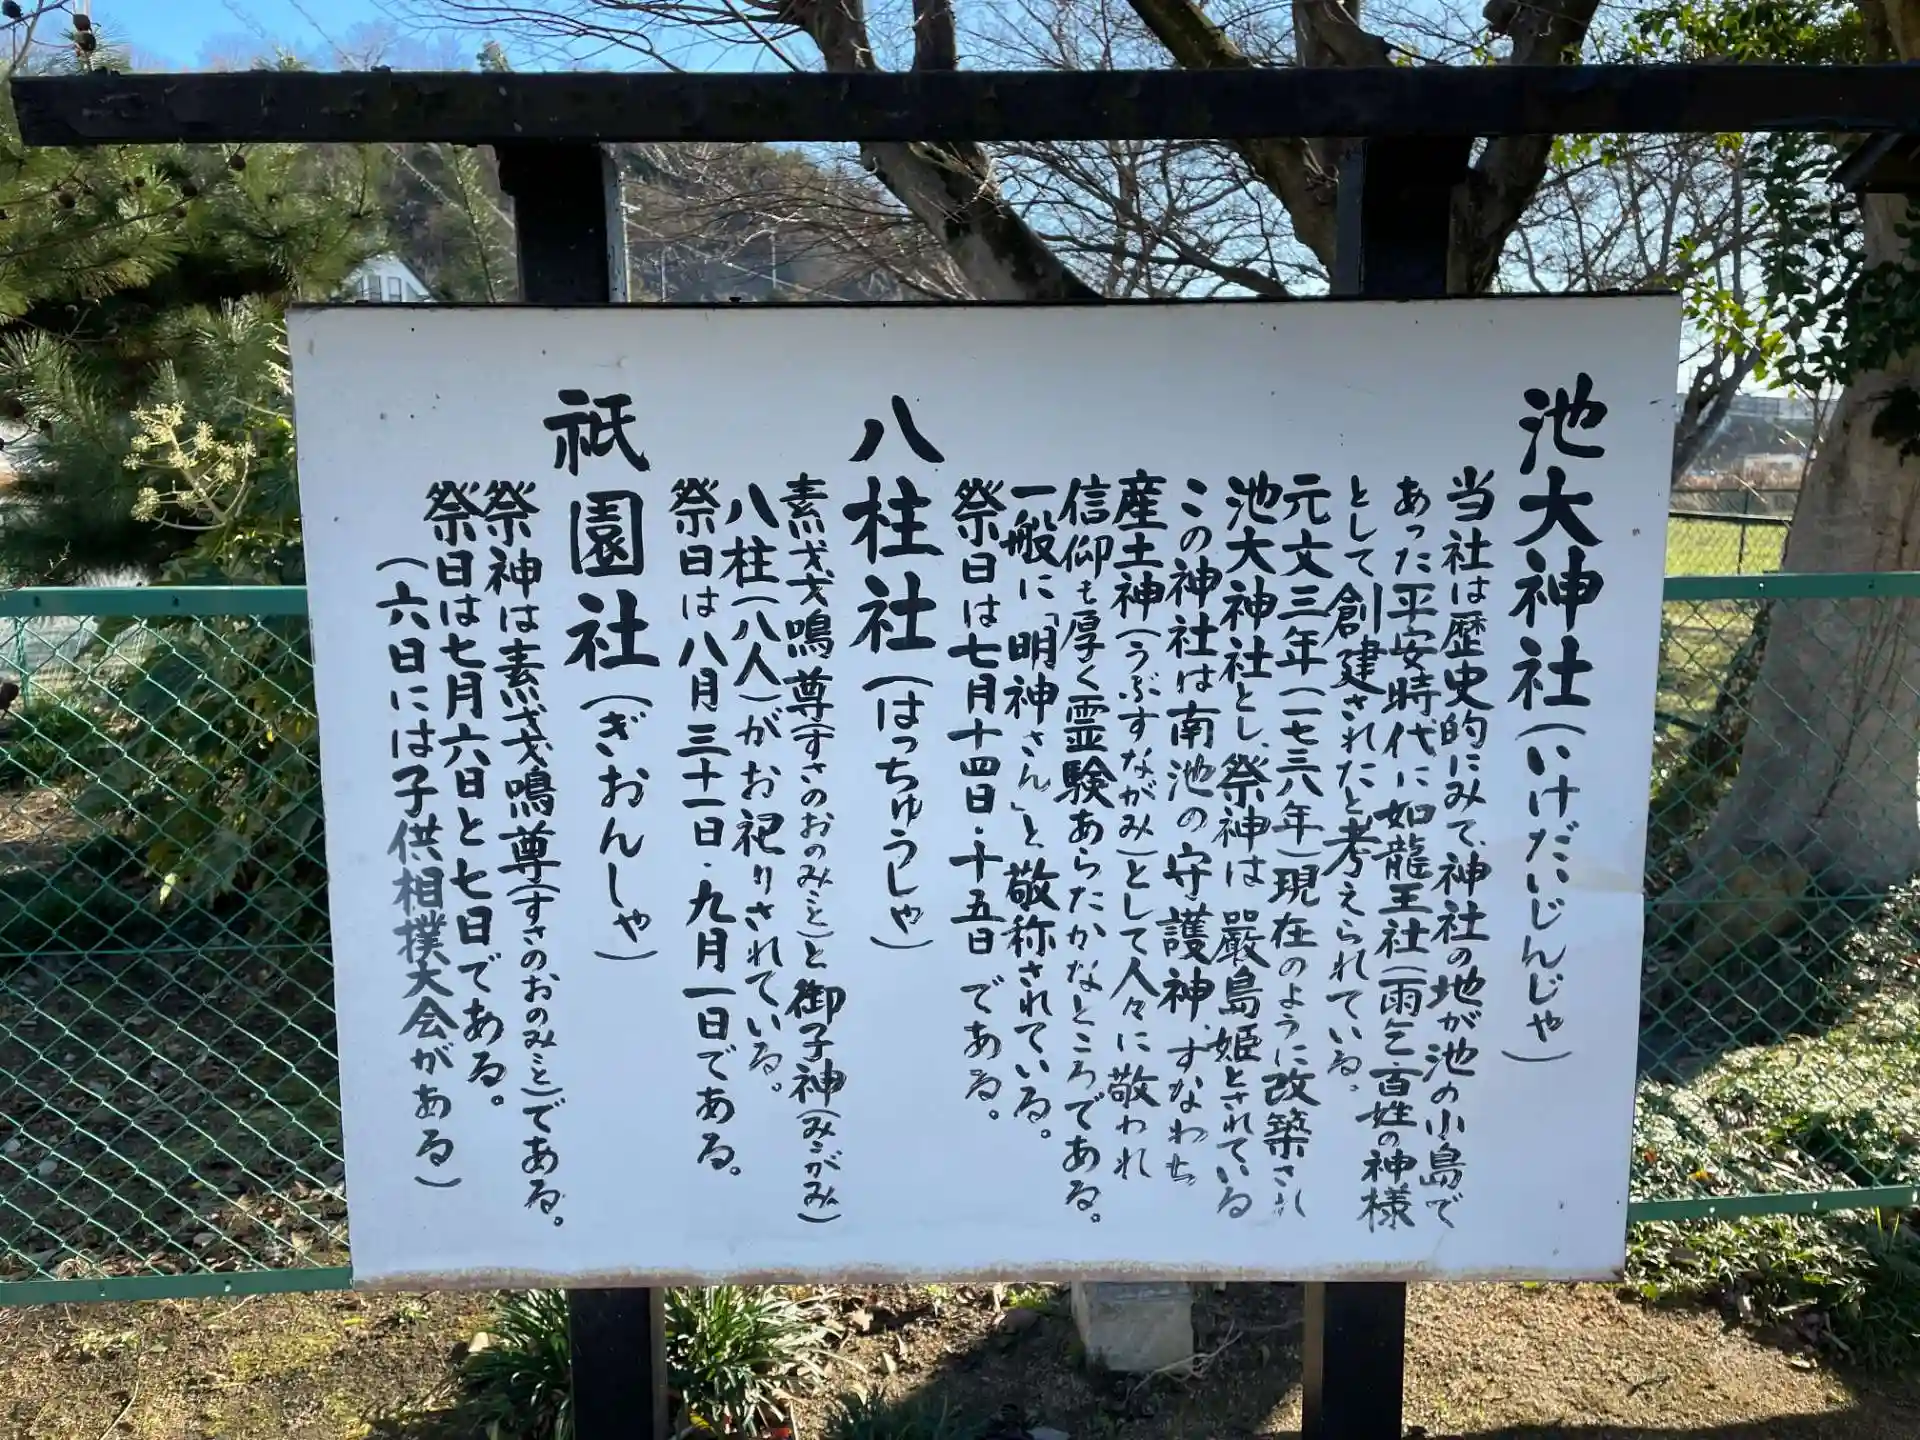 池大神社(いけだいじんじゃ)
当社は歴史的にみて、神社の地が池の小島で
あった平安時代に如龍王社(雨乞・百姓の神様
として創建されたと考えられている。
元文三年(一七三八年)現在のように改築され
池大神社とし、祭神は嚴島姫とされている
この神社は南池の守護神、すなわち
産土神(うぶすながみ)として人々に敬われ
信仰も厚く霊験あらたかなところである。
一般に「明神さん」と敬称されている。
祭日は七月十四日・十五日である。
八柱社(はっちゅうしゃ)
素戔嗚尊(すさのおのみこと)と御子神(みこがみ)
八柱(八人)がお祀りされている。
祭日は八月三十一日・九月一日である。
祇園社(ぎおんしゃ)
祭神は素戔嗚尊(すさのおのみこと)である。
祭日は七月六日と七日である。
(六日には子供相撲大会がある)